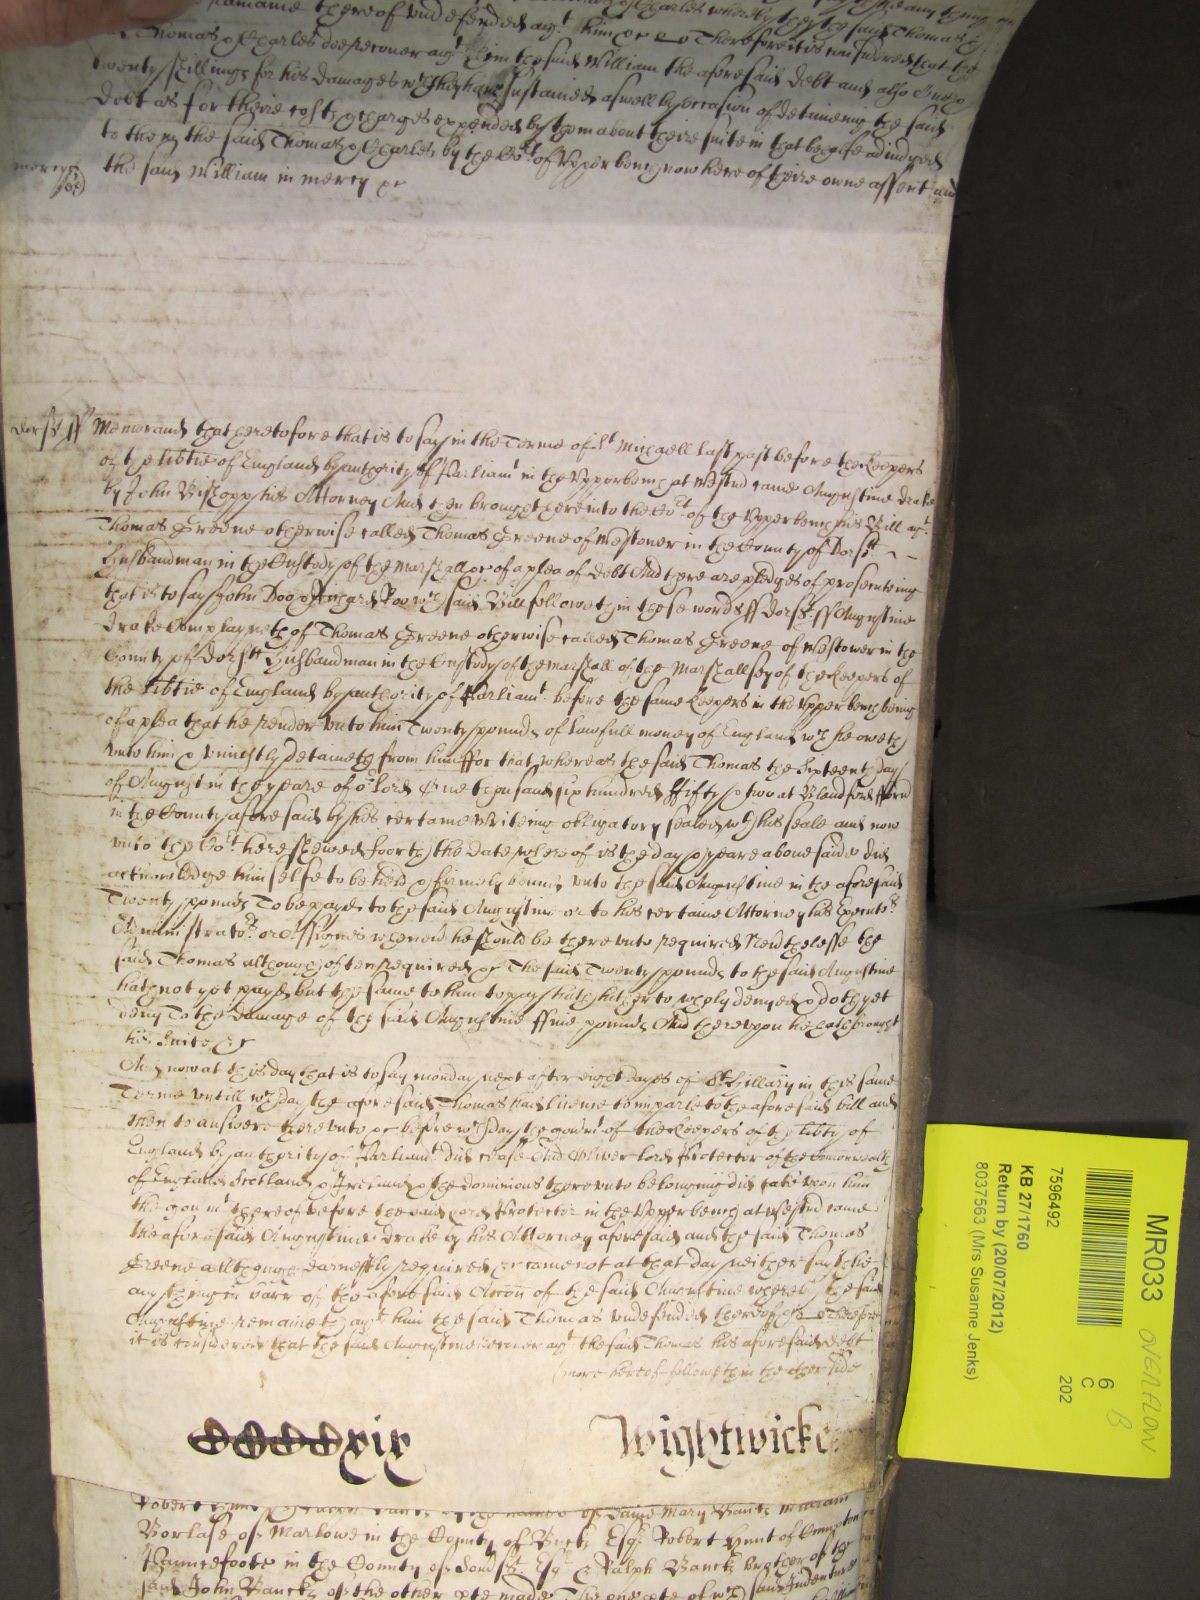 remaine thereof undefended agt. him &c Therefore it is considered that the
Thomas & Charles doe recover agt him the said William the aforesaid debt and also
twenty shillings for his damages wch they have sustained aswell by occasion of deteineing the said
debt as for theire costs & charges expended by them about theire suite in that behalfe adiudged
to them the said Thomas & Charles by the Cot. of Upper bench now here of theire owne assent and
mercy the said William in mercy &c
Dorst ss Memorand that heretofore that is to say in the Terme of St Michaell last past before the keepers
of the libtie of England by authority of Parliamt in the Upper bench at Westmr came Augustine Drake
by John Bishopp his Attorney And then brought here into the Cot. of the Upper bench his Bill agt.
Thomas Greene otherwise called Thomas Greene of Westover in the County of Dorst
Husbandman in the Custody of the Marshall &c of a plea of debt And there are pledges of prosecuteing
that is to say John Doo & Richard Roo wch said Bill followeth in these words ss Dorst ss Augustine
Drake Complayneth of Thomas Greene otherwise called Thomas Greene of Westover in the
County of Dorstt Husbandman in the Custody of the Marshall of the Marshallsey of the keepers of
the libtie of England by authority of Parliamt. before the same keepers in the Upper bench being
of a plea that he render unto him Twenty pounds of lawfull money of England wch he oweth
unto him & uniustly deteineth from him ffor that whereas the said Thomas the sixteenth day
of August in the yeare of or Lord One thousand six hundred ffifty & two at Blandford fforu
in the County aforesaid by his certaine Writeing obligatory sealed wth his seale and now
unto the Cot. here shewed foorth the date whereof is the day & yeare above said did
acknowledge himselfe to be held & firmely bound unto the said Augustine in the aforesaid
Twenty pounds To be payd to the said Augustine or to his certaine Attorney his Executors
Administrators. or Assignes when he should be thereunto required Nevthelesse the
said Thomas although often required &c The said Twenty pounds to the said Augustine
hath not yet payd but the same to him to pay hath hitherto wholy denyed & doth yet
deny To the damage of the said Augustine ffive pounds And thereupon he hath brought
his suite &c
And now at this day that is to say Monday next after eight dayes of St. Hillary in this same
Terme untill wch day the aforesaid Thomas had licence to imparle to the aforesaid bill and
then to answere thereunto &c before wch day the govmt of the keepers of the libty of
England by authority of Parliamt. did cease And Oliver Lord Protector of the Comonwealth
of England Scotland & Ireland & the dominions thereunto belonging did take upon him
the govmt thereof before the said Lord Protector in the Upper bench at Westmr came
the aforesaid Augustine Drake by his Attorney aforesaid and the said Thomas
Greene although earnestly required &c came not at that day neither sayth he
any thing in barr of the aforesaid Accon of the said Augustine whereby the said
Augustine remaineth agt him the said Thomas undefended thereof &c Therefore
it is considered that the said Augustine recover agt the said Thomas his aforesaid debt
more hereof followeth in the other side
CCCCxix Wightwicke
Borlase of Marlowe in the County of Buck Esqr Robert Hunt of
Pauncefoote in the County of Somst. Esqr & Ralph Banck brother of the
said John Banck of the other pte made The one pte of wch said Indenture
MR033 OVERFLOW
7596492
KB 27/1760
Return by (20/07/2012)
8037563 (Mrs Susanne Jenks)
6
C
202
B